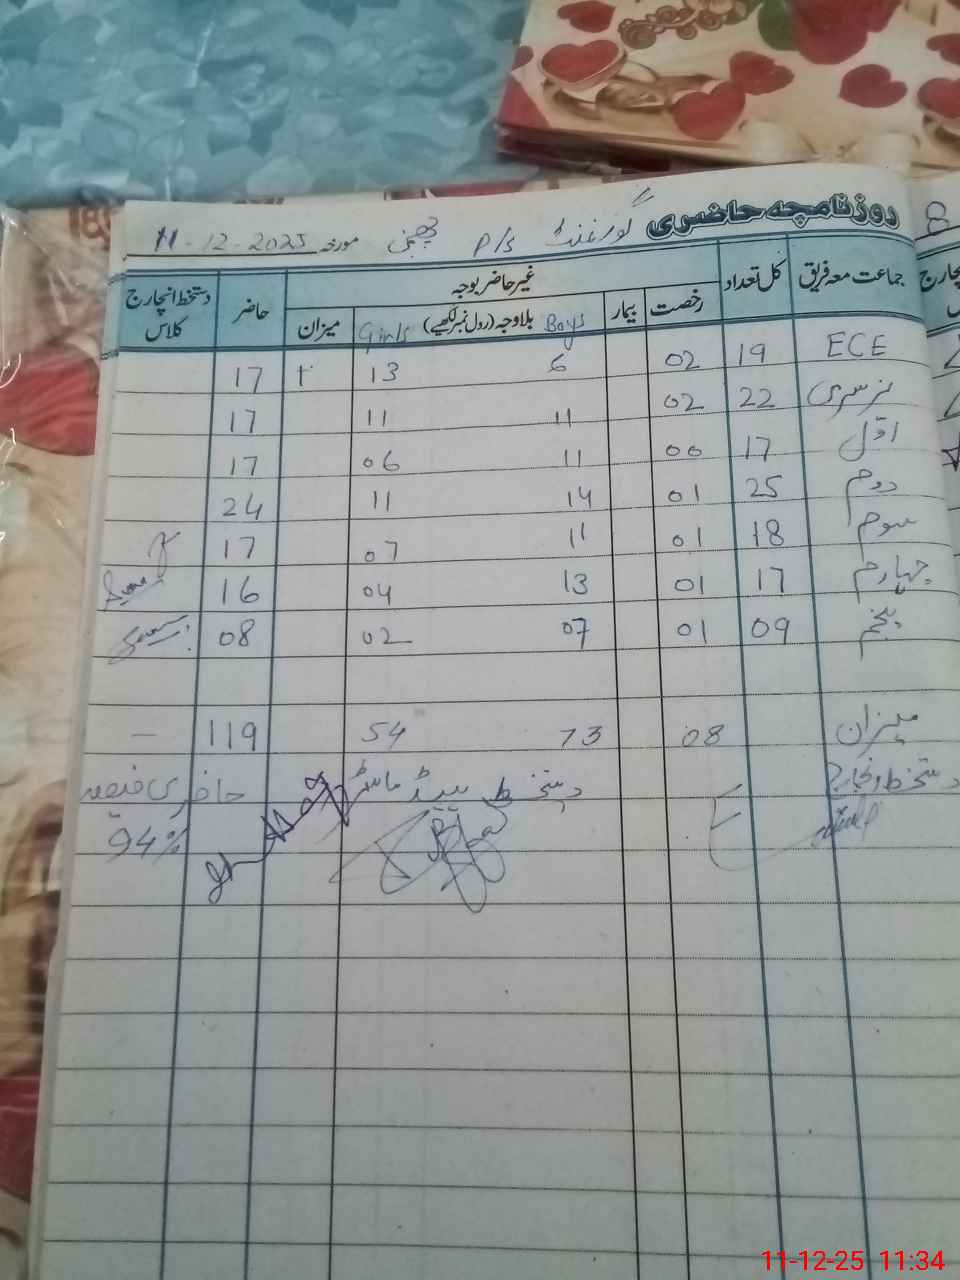 روزنامچہ حاضری گورنمنٹ P/s مورخہ 11-12-2025
جماعت معہ فریق کل تعداد غیر حاضر بوجہ حاضر دستخط انچارج کلاس
رخصت بیمار Boys بلاوجہ (رول نمبر لکھیے) Girls میزان
ECE 19 02 6 13 17
نرسری 22 02 11 11 17
اوّل 17 00 11 06 17
دوم 25 01 14 11 24
سوم 18 01 11 07 17
چہارم 17 01 13 04 16
پنجم 09 01 07 02 08
میزان 08 73 54 119 –
دستخط انچارج دستخط ہیڈ ماسٹر حاضری فیصد
94%
8
11-12-25 11:34